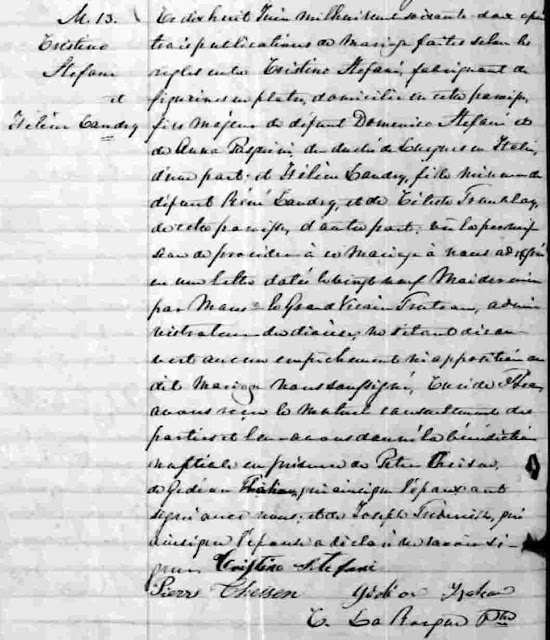 M. 13.
Cristino
Stefani
et
Hélène Landry
Le dix huit Juin mil huit cent soixante deux après
trois publications de Mariage faites selon les
règles entre Cristino Stefani, fabriquant de
figurines en plâtre, domicilié en cette paroisse,
fils majeur de défunt Domenico Stefani et
de Anna Pasquini, du duché de Lucques en Italie,
d'une part; et Hélène Landry, fille mineure de
défunt Réné Landry, et de Céleste Tremblay,
de cette paroisse, d'autre part; vu la permis-
sion de procéder à ce Mariage à nous adressée
en une lettre datée le vingt neuf Mai dernier
par Mons. le Grand Vicaire Truteau, admi-
nistrateur du diocèse, ne s'étant décou-
vert aucun empêchement ni opposition au
dit Mariage nous soussigné, Curé de
avons reçu le mutuel consentement des
parties et leur avons donné la bénédiction
nuptiale en présence de Peter
de Gédéon qui ainsi que l'époux ont
signé avec nous, et de Joseph qui
ainsi que l'épouse a déclaré ne savoir si-
gner. Cristino Stefani
Pierre Thessen Gédéon
C. La Rocque Ptre